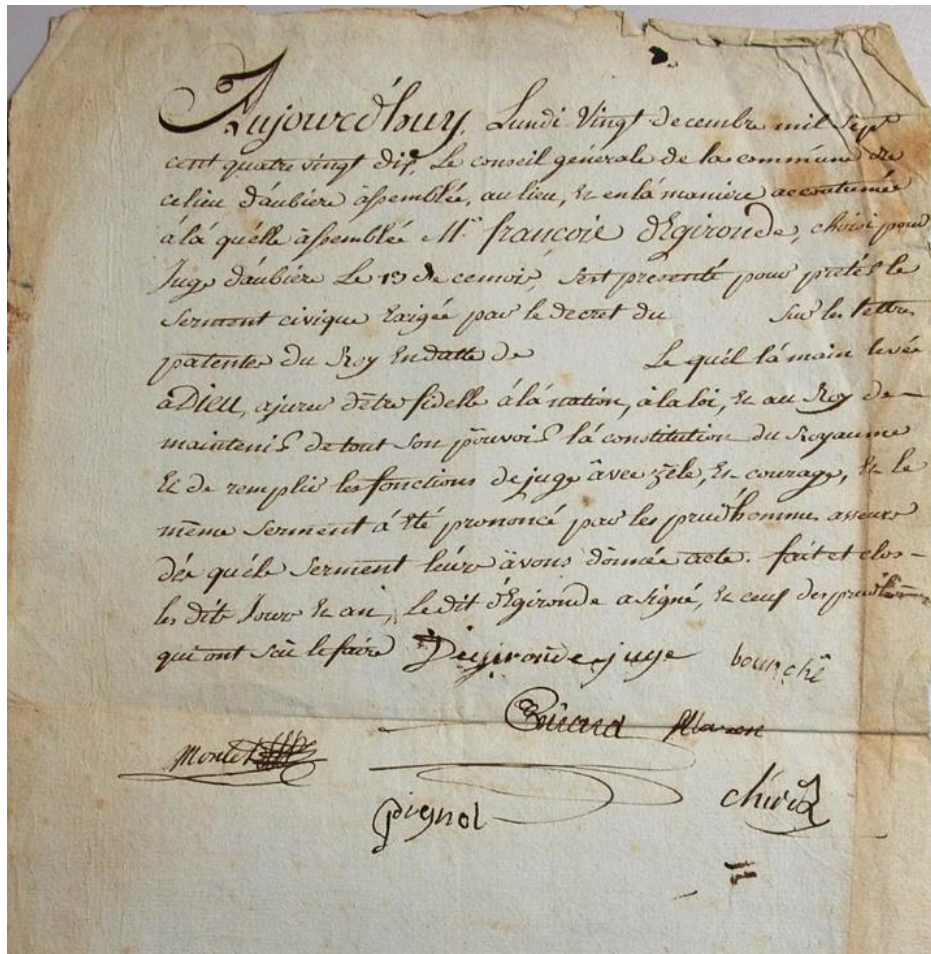 Aujourd'huy, Lundi Vingt decembre mil Sept
cent quatre vingt dix, Le conseil générale de la commune de
ce lieu d'aubiere assemblée, au lieu, & en la maniere accoutumée
à la quélle assemblée Mr. francois d'Egironde, choisi pour
Juge d'aubiere Le 13 de ce moi, s'est presenté pour pretér le
Serment civique Exigée par le decret du Sur les lettres
patentes du Roy En datte de Le quél la main levée
à DIEU, a jurer d'être fidelle á lá nation, á la loi, & au Roy de
maintenir de tout Son pouvoir lá constitution du Royaume
Et de remplir les fonctions de juge avec zéle, & courage, & le
même Serment á été prononcé par les prud'hommes
qui ont Scu le faire Degironde juge
Maron
les dits Jour & an, Le dit d'Egironde a signé, & ceux des prud'hommes
Montel
pignol